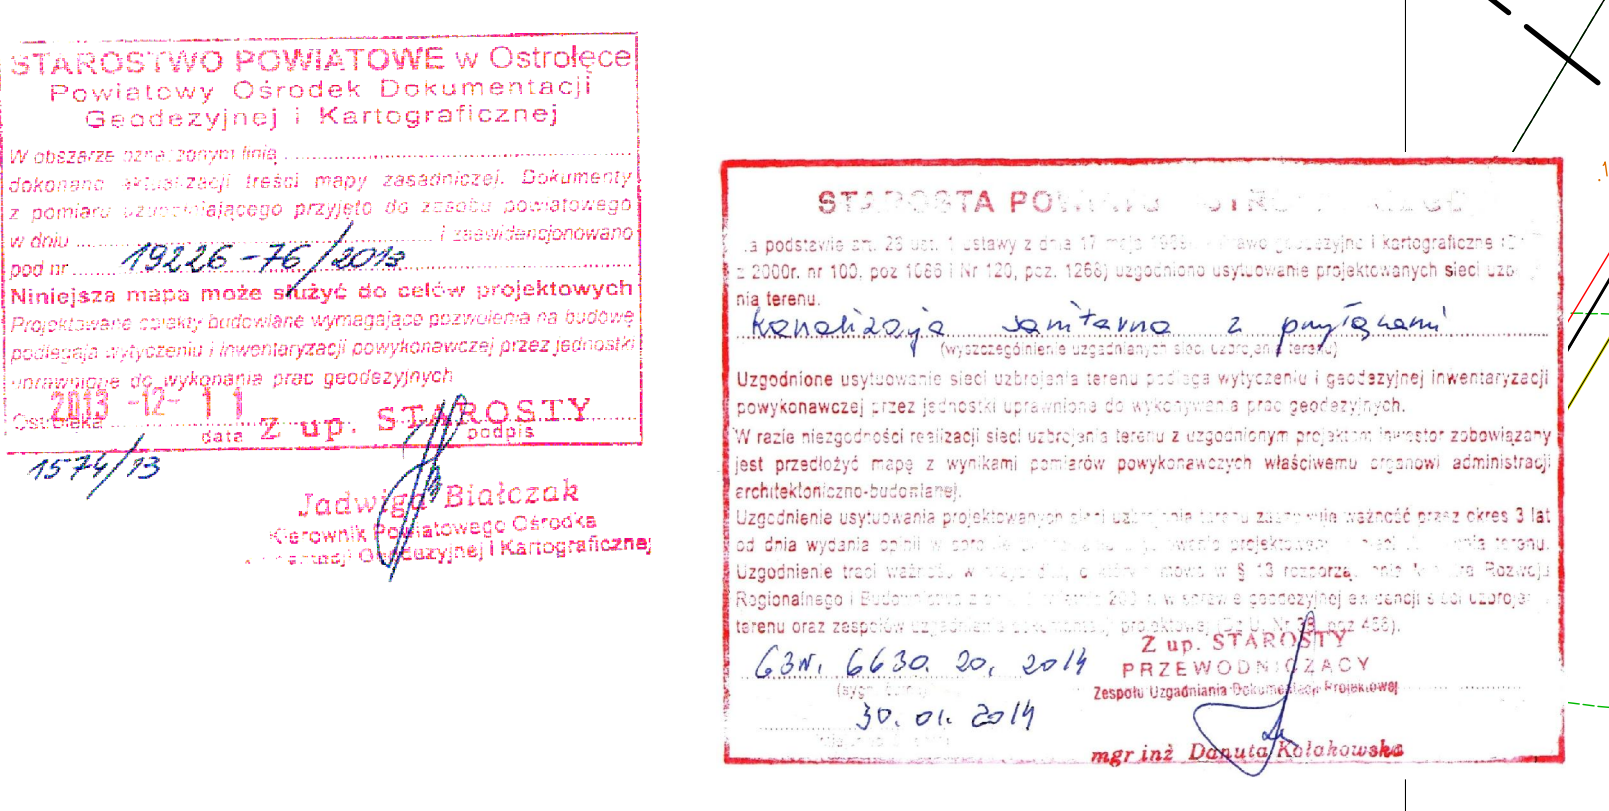 STAROSTWO POWIATOWE w Ostrołęce
Powiatowy Ośrodek Dokumentacji
Geodezyjnej i Kartograficznej
W obszarze oznaczonym linią
dokonano aktualizacji treści mapy zasadniczej. Dokumenty
z pomiaru uzupełniającego przyjęto do zasobu powiatowego
w dniu i zaewidencjonowano
pod nr 19226-76/2013
Niniejsza mapa może służyć do celów projektowych
Projektowane obiekty budowlane wymagające pozwolenia na budowę
podlegają wytyczeniu i inwentaryzacji powykonawczej przez jednostki
uprawnione do wykonania prac geodezyjnych
2013 -12- 11
Ostrołęka data Z up. STAROSTY podpis
1574/13
Jadwiga Białczak
Kierownik Powiatowego Ośrodka
Geodezyjnej i Kartograficznej
STAROSTA
a podstawie art. 28 ust. 1 ustawy z dnia 17 maja geodezyjne i kartograficzne
z 2000r. nr 100, poz 1086 i Nr 120, poz. 1268) uzgodniono usytuowanie projektowanych sieci uzbro
nia terenu.
Kanalizacja sanitarna z przyłączami
(wyszczególnienie uzgadnianych sieci uzbrojenia terenu)
Uzgodnione usytuowanie sieci uzbrojenia terenu podlega wytyczeniu i geodezyjnej inwentaryzacji
powykonawczej przez jednostki uprawnione do wykonywania prac geodezyjnych.
W razie niezgodności realizacji sieci uzbrojenia terenu z uzgodnionym projektem inwestor zobowiązany
jest przedłożyć mapę z wynikami pomiarów powykonawczych właściwemu organowi administracji
architektoniczno-budowlanej.
Uzgodnienie usytuowania projektowanych sieci uzbrojenia terenu zachowuje ważność przez okres 3 lat
od dnia wydania opinii w projektowanej sieci terenu.
Uzgodnienie traci ważność w mowa w § 13 Rozwoju
Regionalnego i Budownictwa w sprawie geodezyjnej ewidencji sieci uzbrojenia
terenu oraz zespołów uzgadniania dokumentacji projektowej (Dz U. Nr 38, poz 455).
Z up. STAROSTY
GZN. 6630. 20. 2014 PRZEWODNICZĄCY
Zespołu Uzgadniania Dokumentacji Projektowej
30. 01. 2014
mgr inż Danuta Kołakowska